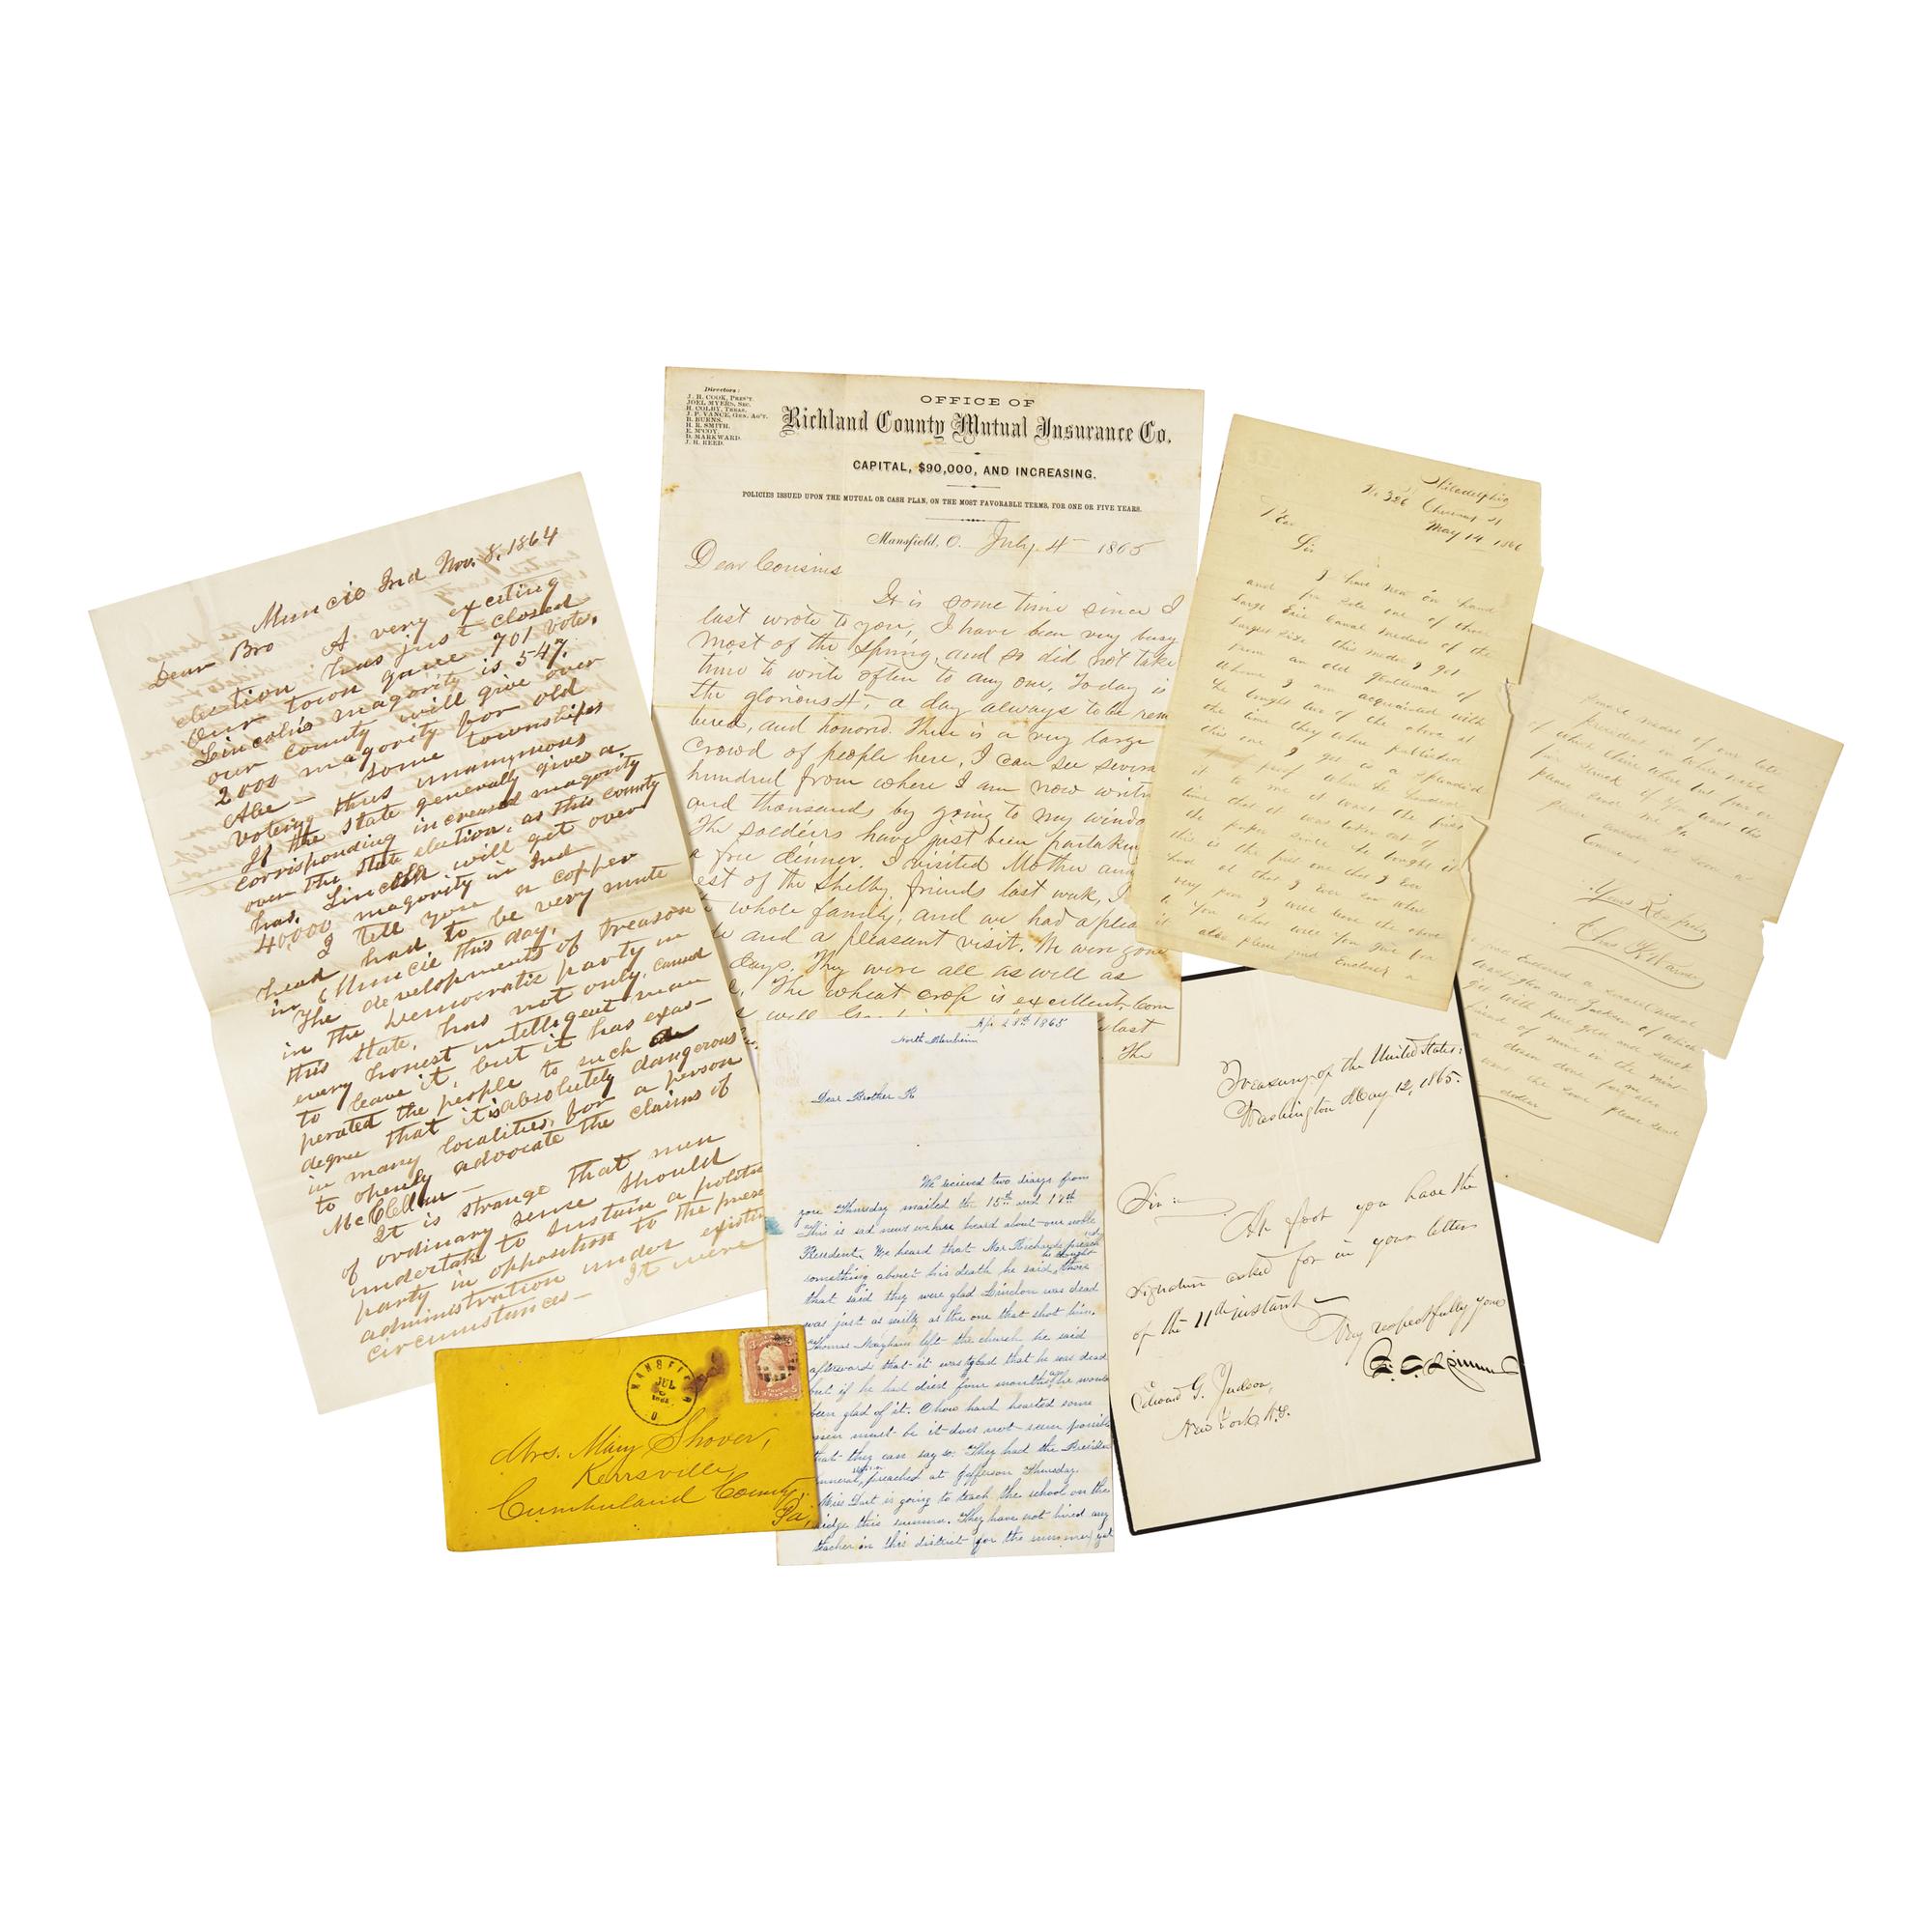 Muncie Ind Nov. 8, 1864
Dear Bro A very exciting
election has just closed
Our town gave 701 vote,
Lincoln's magority is 547.
our county will give over
2000 magority for old
Abe — some townships
voting thus unanymous
If the State generally give a
corrisponding increased magority
over the State election, as this county
has, Lincoln will get over
40,000 magority in Ind
I tell you a copper
head had to be very mute
in Muncie this day,
The developments of treason
in the Democratic party in
this State, has not only, caused
every honest intelligent man
to leave it, but it has exas-
perated the people to such a
degree that it is absolutely dangerous
in many localities, for a person
to openly advocate the claims of
McClellan —
It is strange that men
of ordinary sense should
undertake to sustain a politi
party in opposition to the pres
administration under existin
circumstances —
It were
Directors:
J. H. COOK, PRES'T.
JOEL MYERS, SEC.
H. COLBY, TREAS.
J. P. VANCE, GEN. AG'T.
B. BURNS.
H. R. SMITH.
E. McCOY.
D. MARKWARD.
J. H. REED.
OFFICE OF
Richland County Mutual Insurance Co.
CAPITAL, $90,000, AND INCREASING.
POLICIES ISSUED UPON THE MUTUAL OR CASH PLAN, ON THE MOST FAVORABLE TERMS, FOR ONE OR FIVE YEARS.
Mansfield, O. July 4 1865
Dear Cousins
It is some time since I
last wrote to you, I have been very busy
most of the Spring, and so did not take
time to write often to any one. Today is
the glorious 4, a day always to be rem
bered, and honord. There is a very large
crowd of people here, I can see severa
hundred from where I am now writi
and thousands by going to my windo
The soldiers have just been partakin
a free dinner. I visited Mother and
est of the Shelby friends last week, I
whole family, and we had a plea
and a pleasant visit. We were gone
days. They were all as well as
The wheat crop is excellent, corn
will
last
The
Philadelphia
No 326 Chesnut St
May 14 1866
Dear
Sir
I have now on hand
and for sale one of those
Large Erie Canal Medals of the
Largest Size this medal I got
from an old gentleman of
whome I am acquainted with
he bought two of the above at
the time they where published
this one I got is a splendid
proof
it to me it was the first
time that it was taken out of
the paper since he bought it
this is the first one that I Ever
had at that I Ever saw
very poor I will leave the above
to you what will you give for
it also please find Enclosed a
small medal of our late
president
of which
fine struck if you want this
please send me
please answer as soon as
Conveniant
Yours Respectfully
Chas K Warner
Enclosed a small medal
Washington and Jackson of which
get with pure gold and struck
friend of mine in the mint
a dozen done for me also
want the same please send
dollar
Apr 28th 1865
North Blenheim
Dear Brother R
We recieved two diarys from
you Thursday mailed the 15th and 17th
This is sad news we have heard about our noble
President. We heard that Mr Richards preach'd
something about his death he said he thought those
that said they were glad Lincoln was dead
was just as guilty as the one that shot him.
Thomas Mayham left the church he said
afterward that it was glad that he was dead
but if he had died four months ago he would
been glad of it. O how hard hearted some
men must be it does not seem possible
that they can say so. They had the Presiden
funeral preached at Jefferson Thursday.
Miss Dart is going to teach the school on the
ridge this summer. They have not hired any
teacher in this district for the summer yet
Treasury of the United States:
Washington May 12, 1865.
Sir:
At foot you have the
signature asked for in your letter
of the 11th instant —
Very respectfully yours
Edward G. Judson,
New York, N.Y.
MANSFIELD
JUL
O.
Mrs. Mary Shover,
Kerrsville,
Cumberland County,
Pa,